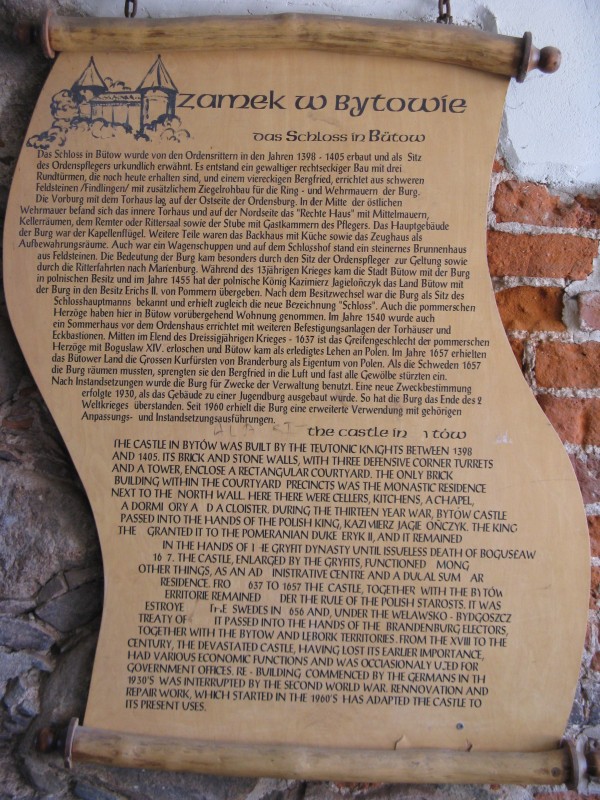 Zamek w Bytowie
Das Schloss in Bütow
Das Schloss in Bütow wurde von den Ordensrittern in den Jahren 1398 - 1405 erbaut und als Sitz
des Ordenspflegers urkundlich erwähnt. Es entstand ein gewaltiger rechtseckiger Bau mit drei
Rundtürmen, die noch heute erhalten sind, und einem viereckigen Bergfried, errichtet aus schweren
Feldsteinen /Findlingen/ mit zusätzlichem Ziegelrohbau für die Ring - und Wehrmauern der Burg.
Die Vorburg mit dem Torhaus lag, auf der Ostseite der Ordensburg. In der Mitte der östlichen
Wehrmauer befand sich das innere Torhaus und auf der Nordseite das "Rechte Haus" mit Mittelmauern,
Kellerräumen, dem Remter oder Rittersaal sowie der Stube mit Gastkammern des Pflegers. Das Hauptgebäude
der Burg war der Kapellenflügel. Weitere Teile waren das Backhaus mit Küche sowie das Zeughaus als
Aufbewahrungsräume. Auch war ein Wagenschuppen und auf dem Schlosshof stand ein steinernes Brunnenhaus
aus Feldsteinen. Die Bedeutung der Burg kam besonders durch den Sitz der Ordenspfleger zur Geltung sowie
durch die Ritterfahrten nach Marienburg. Während des 13jährigen Krieges kam die Stadt Bütow mit der Burg
in polnischen Besitz und im Jahre 1455 hat der polnische König Kazimierz Jagielończyk das Land Bütow mit
der Burg in den Besitz Erichs II. von Pommern übergeben. Nach dem Besitzwechsel war die Burg als Sitz des
Schlosshauptmanns bekannt und erhielt zugleich die neue Bezeichnung "Schloss". Auch die pommerschen
Herzöge haben hier in Bütow vorübergehend Wohnung genommen. Im Jahre 1540 wurde auch
ein Sommerhaus vor dem Ordenshaus errichtet mit weiteren Befestigungsanlagen der Torhäuser und
Eckbastionen. Mitten im Elend des Dreissigjährigen Krieges - 1637 ist das Greifengeschlecht der pommerschen
Herzöge mit Boguslaw XIV. erloschen und Bütow kam als erledigtes Lehen an Polen. Im Jahre 1657 erhielten
das Bütower Land die Grossen Kurfürsten von Branderburg als Eigentum von Polen. Als die Schweden 1657
die Burg räumen mussten, sprengten sie den Bergfried in die Luft und fast alle Gewölbe stürzten ein.
Nach Instandsetzungen wurde die Burg für Zwecke der Verwaltung benutzt. Eine neue Zweckbestimmung
erfolgte 1930, als das Gebäude zu einer Jugendburg ausgebaut wurde. So hat die Burg das Ende des 2
Weltkrieges überstanden. Seit 1960 erhielt die Burg eine erweiterte Verwendung mit gehörigen
Anpassungs- und Instandsetzungsausführungen.
the castle in ytów
THE CASTLE IN BYTÓW WAS BUILT BY THE TEUTONIC KNIGHTS BETWEEN 1398
AND 1405. ITS BRICK AND STONE WALLS, WITH THREE DEFENSIVE CORNER TURRETS
AND A TOWER, ENCLOSE A RECTANGULAR COURTYARD. THE ONLY BRICK
BUILDING WITHIN THE COURTYARD PRECINCTS WAS THE MONASTIC RESIDENCE
NEXT TO THE NORTH WALL. HERE THERE WERE CELLERS, KITCHENS, A CHAPEL,
A DORMI ORY A D A CLOISTER. DURING THE THIRTEEN YEAR WAR, BYTÓW CASTLE
PASSED INTO THE HANDS OF THE POLISH KING, KAZIMIERZ JAGIE OŃCZYK. THE KING
THE GRANTED IT TO THE POMERANIAN DUKE ERYK II, AND IT REMAINED
IN THE HANDS OF T E GRYFIT DYNASTY UNTIL ISSUELESS DEATH OF BOGUSEAW
16 7. THE CASTLE, ENLARGED BY THE GRYFITS, FUNCTIONED MONG
OTHER THINGS, AS AN AD INISTRATIVE CENTRE AND A DUCAL SUM AR
RESIDENCE. FRO 637 TO 1657 THE CASTLE, TOGETHER WITH THE BYTÓW
ERRITORIE REMAINED DER THE RULE OF THE POLISH STAROSTS. IT WAS
ESTROYE THE SWEDES IN 656 AND, UNDER THE WELAWSKO - BYDGOSZCZ
TREATY OF IT PASSED INTO THE HANDS OF THE BRANDENBURG ELECTORS,
TOGETHER WITH THE BYTOW AND LEBORK TERRITORIES. FROM THE XVIII TO THE
CENTURY, THE DEVASTATED CASTLE, HAVING LOST ITS EARLIER IMPORTANCE,
HAD VARIOUS ECONOMIC FUNCTIONS AND WAS OCCIASIONALY USED FOR
GOVERNMENT OFFICES. RE - BUILDING COMMENCED BY THE GERMANS IN TH
1930'S WAS INTERRUPTED BY THE SECOND WORLD WAR. RENNOVATION AND
REPAIR WORK, WHICH STARTED IN THE 1960'S HAS ADAPTED THE CASTLE TO
ITS PRESENT USES.